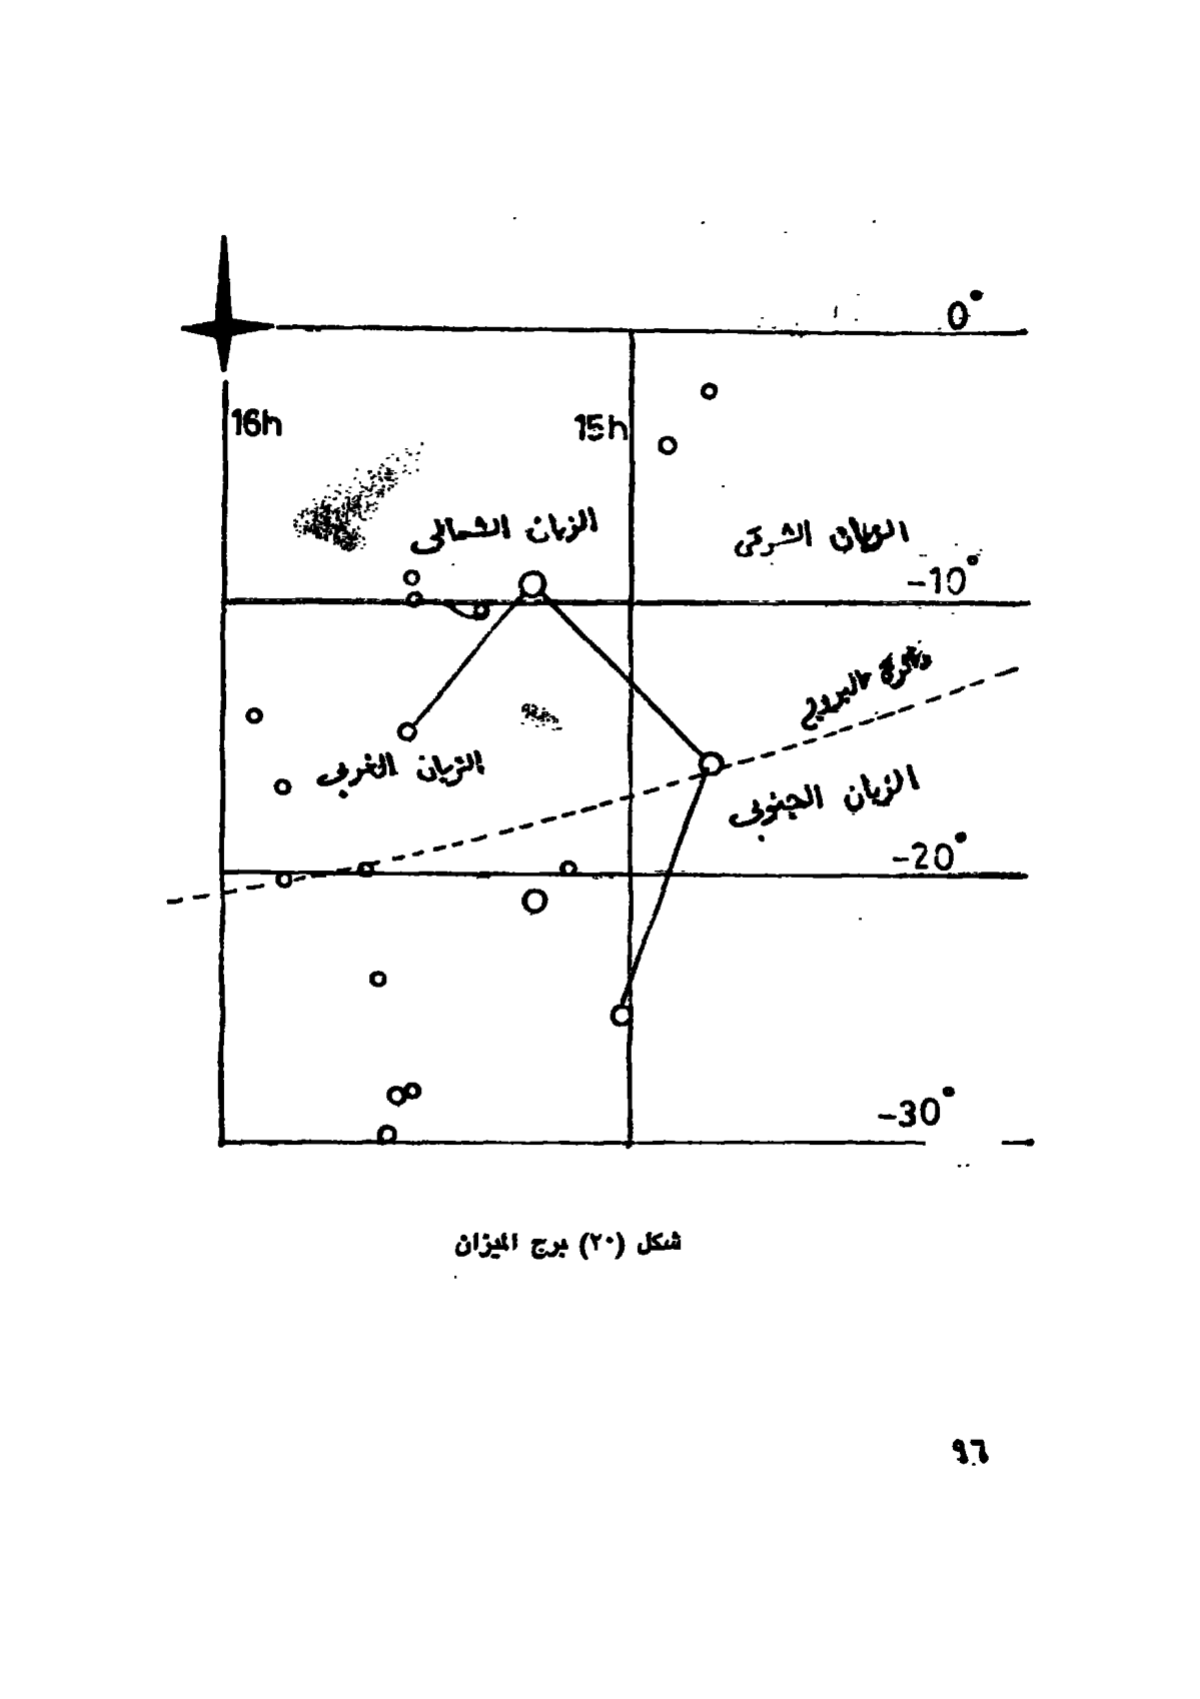 0°
16h
15h
الزبان الشمالى
الزبان الشرقى
-10°
دائرة البروج
الزبان الغربى
الزبان الجنوبى
-20°
-30°
شكل (٢٠) برج الميزان
٩٦